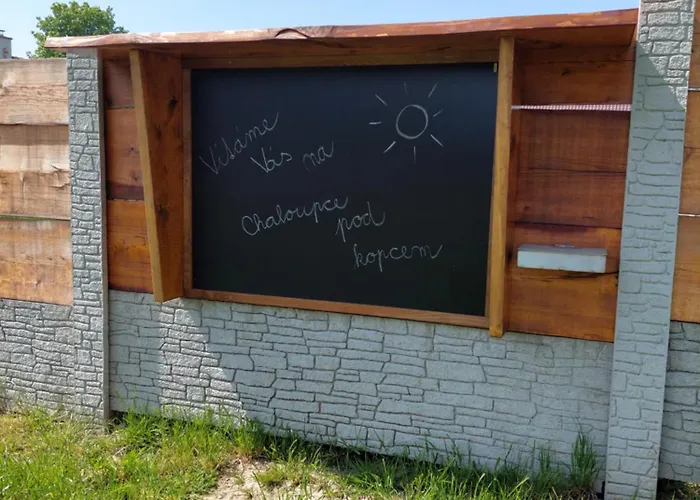 Vítáme
Vás na
Chaloupce
pod
kopcem